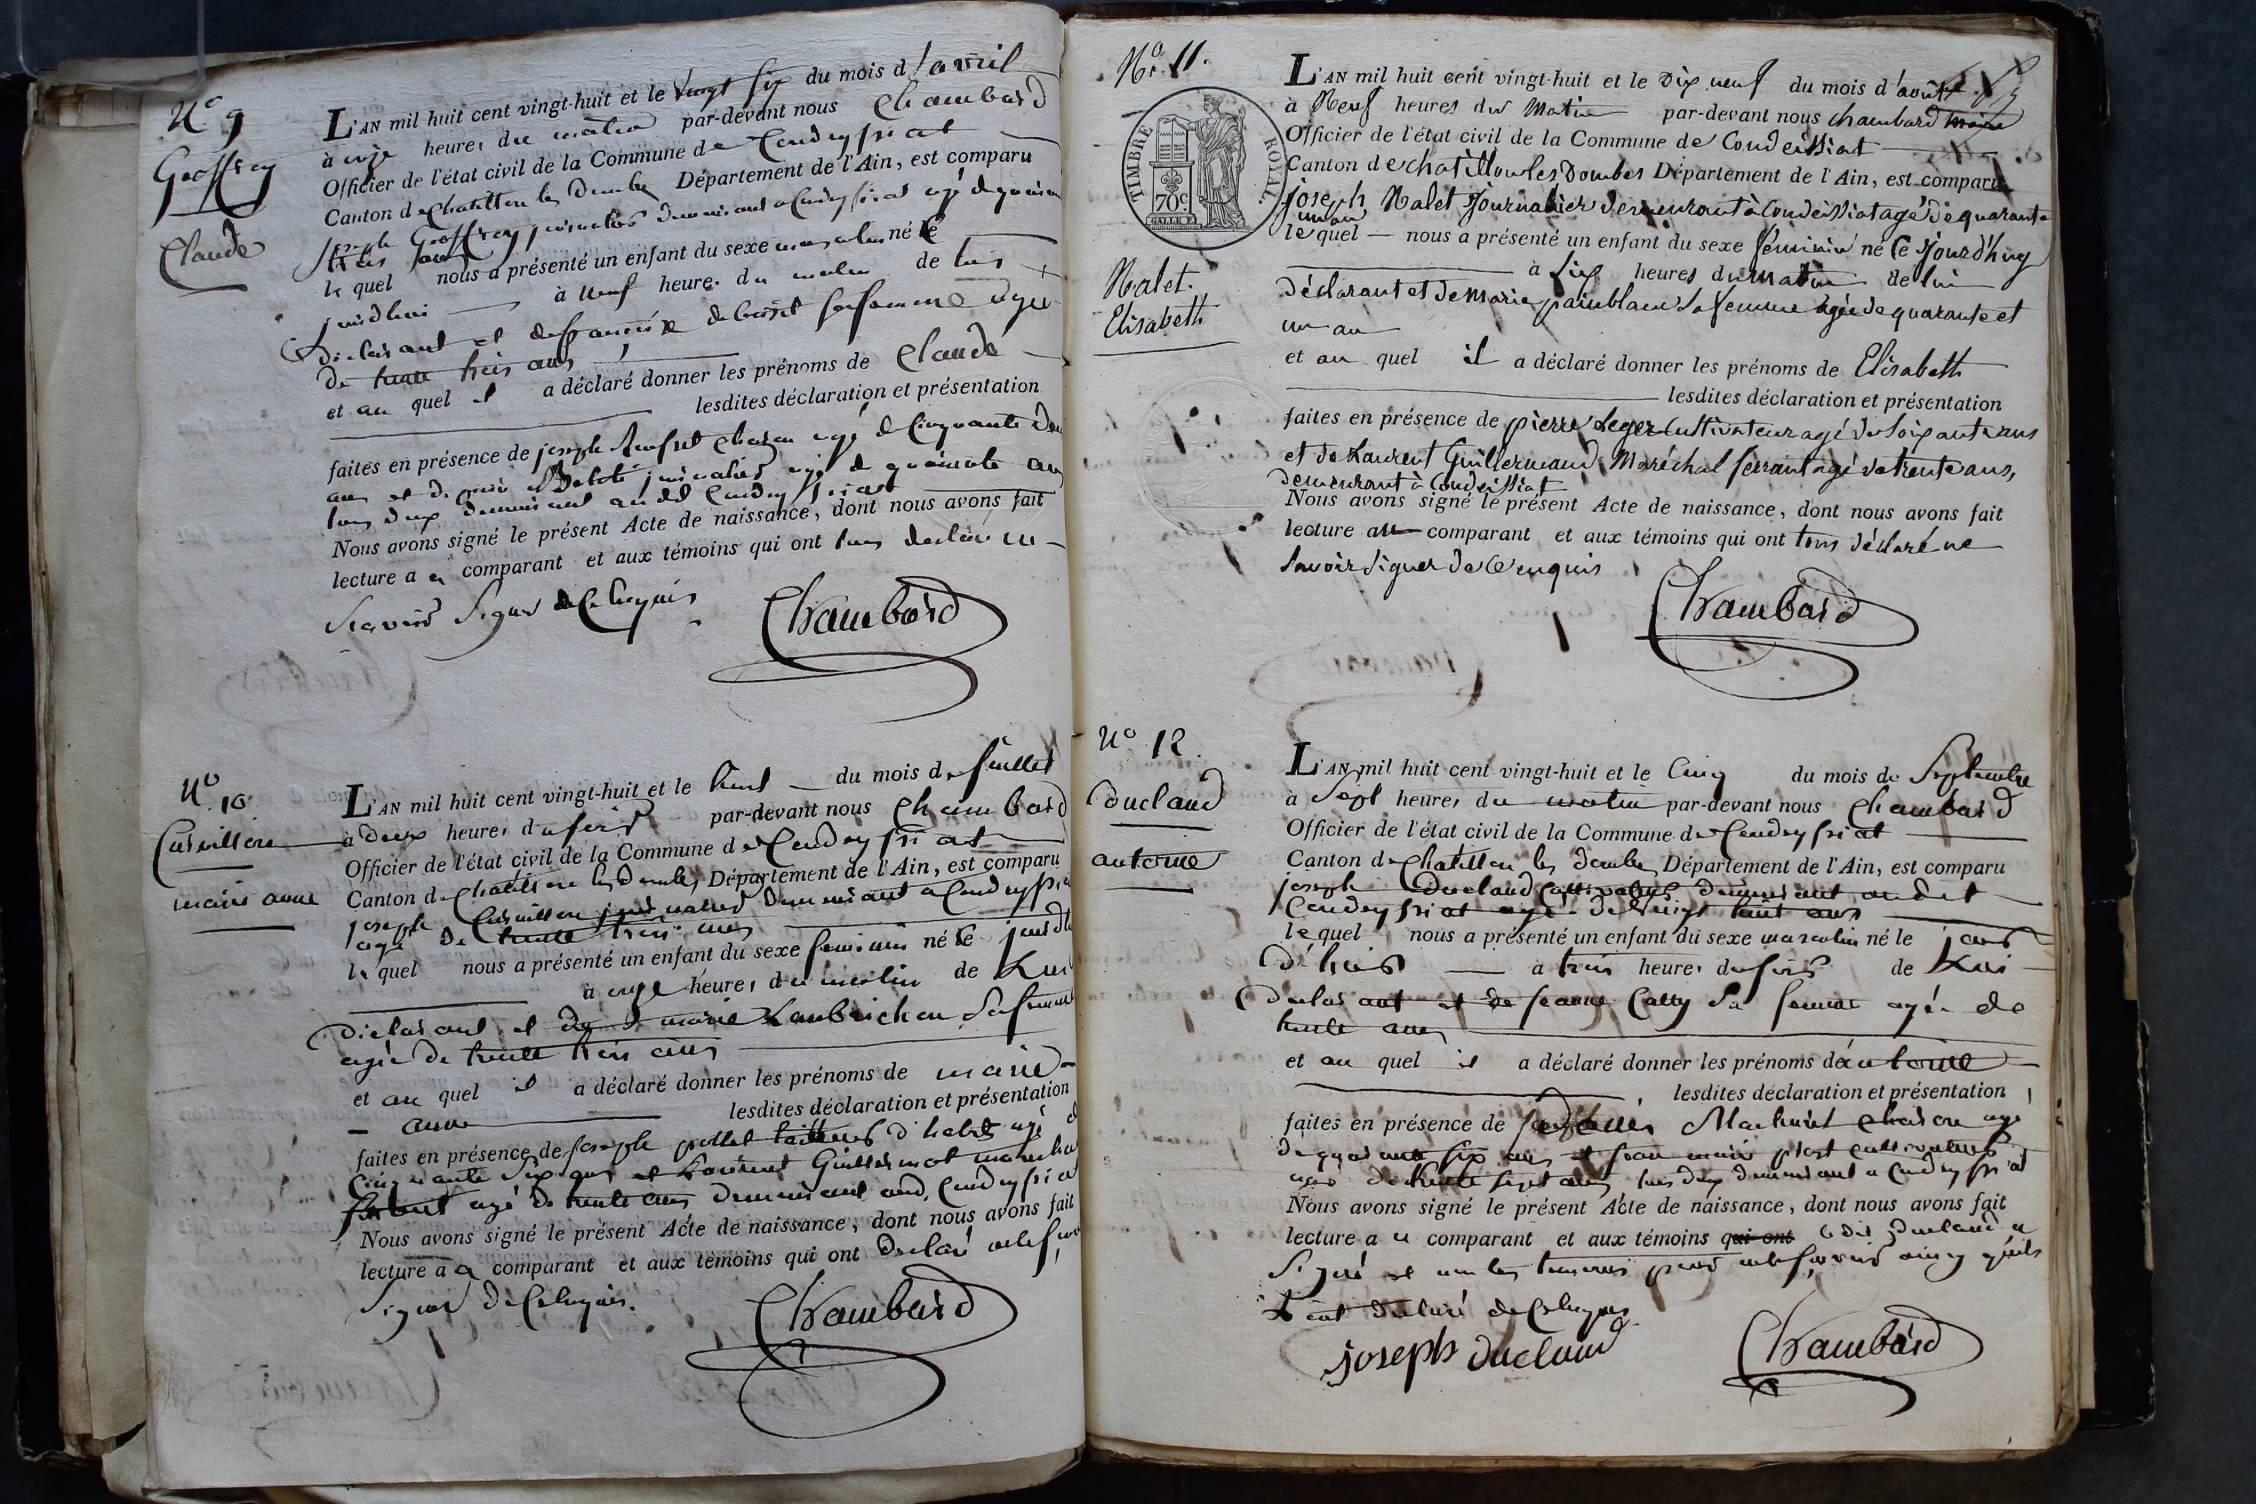 N.º 9
Geoffray
Claude
L'AN mil huit cent vingt-huit et le vingt six du mois d'avril
à onze heures du matin par-devant nous Chambard
Officier de l'état civil de la Commune de Condeyssiat
Canton de Chatillon les Dombes Département de l'Ain, est comparu
Joseph Geoffray journalier demeurant a Condeyssiat agé de quarante
trois ans
le quel nous a présenté un enfant du sexe masculin né le
jourdhui à neuf heures du matin de lui
Déclarant et de françoise sa femme agée
de trente trois ans
et au quel il a déclaré donner les prénoms de Claude
lesdites déclaration et présentation
faites en présence de joseph agé de Cinquante deux
ans et de journalier agé de quarante ans
tous deux demeurant aud Condeyssiat
Nous avons signé le présent Acte de naissance, dont nous avons fait
lecture au comparant et aux témoins qui ont tous declaré ne
Scavoir Signer de Ce Enquis
Chambard
N.º 10
Cuivillon
marie anne
L'AN mil huit cent vingt-huit et le huit du mois de Juillet
à deux heures du soir par-devant nous Chambard
Officier de l'état civil de la Commune de Condeyssiat
Canton de Chatillon les Dombes Département de l'Ain, est comparu
joseph Cuivillon journalier demeurant a Condeyssiat
agé de trente trois ans
le quel nous a présenté un enfant du sexe feminin né le jourdh
à onze heures du matin de Lui
Déclarant et de marie Laubrichon Sa femme
agée de trente trois ans
et au quel il a déclaré donner les prénoms de marie
anne lesdites déclaration et présentation
faites en présence de Joseph pollet tailleur d'habits agé de
Cinquante Six ans et Laurent Guillermot marechal
ferrant agé de trente ans demeurant aud. Condeyssiat
Nous avons signé le présent Acte de naissance, dont nous avons fait
lecture au comparant et aux témoins qui ont declaré ne scavoir
Signer de Ce Enquis.
Chambard
N.º 11.
TIMBRE ROYAL.
70c
Nalet.
Elisabeth
L'AN mil huit cent vingt-huit et le dix neuf du mois d'août
à Neuf heures du Matin par-devant nous chambard maire
Officier de l'état civil de la Commune de Condeissiat
Canton de chatillon les Dombes Département de l'Ain, est comparu
joseph Nalet Journalier demeurant à Condeissiat agé de quarante
un an
le quel nous a présenté un enfant du sexe féminin né le Jourd'huy
à Six heures du matin de lui
déclarant et de marie painblanc Sa femme agée de quarante et
un an
et au quel il a déclaré donner les prénoms de Elisabeth
lesdites déclaration et présentation
faites en présence de pierre Leger Cultivateur agé de Soixante ans
et de Laurent Guillermand Maréchal ferrant agé de trente ans,
demeurant à Condeissiat
Nous avons signé le présent Acte de naissance, dont nous avons fait
lecture au comparant et aux témoins qui ont tous déclaré ne
Savoir Signer de Ce enquis
Chambard
N.º 12.
Ducland
antoine
L'AN mil huit cent vingt-huit et le Cinq du mois de Septembre
à Sept heures du matin par-devant nous Chambard
Officier de l'état civil de la Commune de Condeyssiat
Canton de Chatillon les Dombes Département de l'Ain, est comparu
joseph Ducland Cultivateur demeurant audit
Condeyssiat agé de vingt huit ans
le quel nous a présenté un enfant du sexe masculin né le jour
d'hier à trois heures du soir de Lui
Déclarant et de jeanne Catty Sa femme agée de
trente ans
et au quel il a déclaré donner les prénoms d'antoine
lesdites déclaration et présentation
faites en présence de agé
de quarante six ans et jean marie cultivateur
agé de trente sept ans tous deux demeurant a Condeyssiat
Nous avons signé le présent Acte de naissance, dont nous avons fait
lecture au comparant et aux témoins qui ont le dit Ducland a
Signé et non les temoins pour ne scavoir ainsy quils
L'ont declaré de Ce Enquis
joseph ducland
Chambard